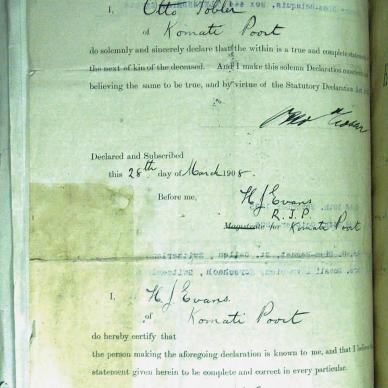 I, Otto Tobler
of Komati Poort
do solemnly and sincerely declare that the within is a true and complete
the next of kin of the deceased. And I make this solemn Declaration
believing the same to be true, and by virtue of the Statutory Declaration Act
Declared and Subscribed
this 28th day of March 1908.
Before me,
H J Evans
R. J. P.
Magistrate for Komati Poort
I, H J Evans
of Komati Poort
do hereby certify that
the person making the aforegoing declaration is known to me, and that I
statement given herein to be complete and correct in every particular.